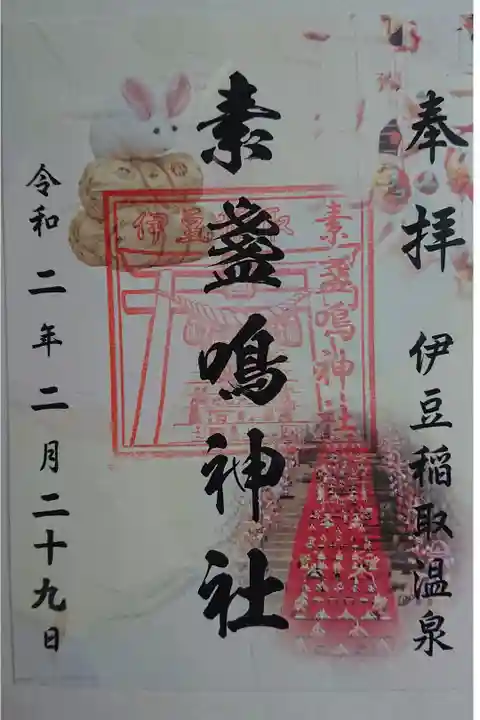 奉拝 伊豆稲取温泉
素盞鳴神社
令和二年二月二十九日
素盞鳴神社
伊豆稲取